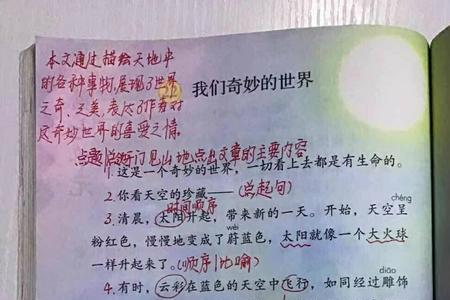 本文通过描绘天地中
的各种事物,展现了世界
之奇、之美,表达了作者对
这奇妙世界的喜爱之情。
22 我们奇妙的世界
点题 总起 开门见山地点出文章的主要内容
1.这是一个奇妙的世界,一切看上去都是有生命的。
2.你看天空的珍藏——(总起句)
时间顺序
chéng
3.清晨,太阳升起,带来新的一天。开始,天空呈
wèi
粉红色,慢慢地变成了蔚蓝色,太阳就像一个大火球
一样升起来了。(顺序/比喻)
diāo
4.有时,云彩在蓝色的天空中飞行,如同经过雕饰